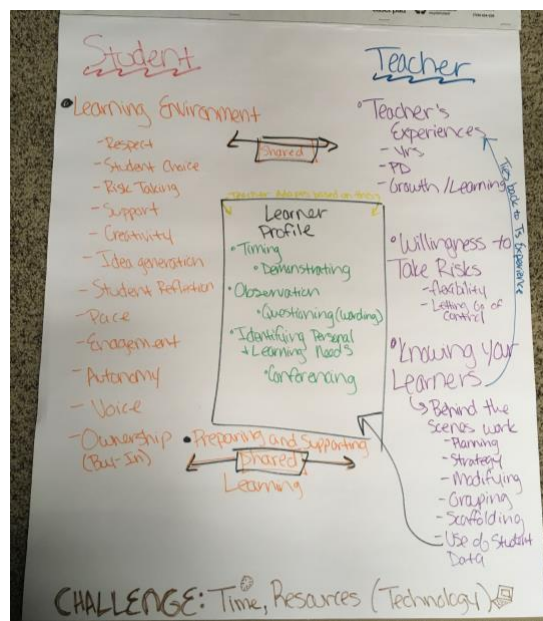 Student
Teacher
• Learning Environment
- Respect
- Student Choice
- Risk Taking
- Support
- Creativity
- Idea generation
- Student Reflection
- Pace
- Engagement
- Autonomy
- Voice
- Ownership
(Buy-In)
Shared
Teacher Adapts based on them
Learner
Profile
• Timing
• Demonstrating
• Observation
• Questioning (wording)
• Identifying Personal
+ Learning Needs
• Conferencing
• Preparing and Supporting
Shared
Learning
• Teacher's
Experiences
- Yrs
- PD
- Growth/Learning
Ties back to T's Experience
• Willingness to
Take Risks
- flexibility
- Letting Go of
control
• Knowing your
Learners
Behind the
Scenes work
- Planning
- Strategy
- Modifying
- Grouping
- Scaffolding
- Use of Student
Data
CHALLENGE: Time, Resources (Technology)